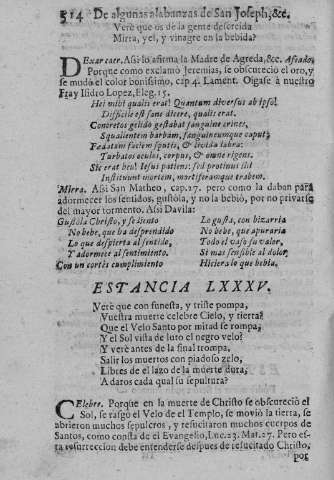 514 De algunas alabanzas de San Joseph, &c.
Verè que os dà la gente descreida
Mirra, yel, y vinagre en la bebida?
DExarcaer. Assi lo afirma la Madre de Agreda, &c. Afeado,
Porque como exclamò Jeremias, se obscureciò el oro, y
se mudò el color bonissimo, cap. 4. Lament. Oigase à nuestro
Fray Isidro Lopez, Eleg. 15.
Hei mihi qualis erat! Quantum diversus ab ipso!
Difficile est sane dicere, qualis erat.
Concretos gelido gestabat sanguine crines,
Squalentem barbam, sanguineumque caput;
Fœdatam faciem sputis, & livida labra:
Turbatos oculos, corpus, & omne rigens.
Sic erat heu! Iesus patiens: sed protinus illi
Instituunt mortem, mortiferamque crabem.
Mirra. Assi San Matheo, cap. 27. pero como la daban para
adormecer los sentidos, gustòla, y no la bebiò, por no privarse
del mayor tormento. Assi Davila:
Gustòla Christo, y se siento
No bebe, que ha desprendido
Lo que despierta al sentido,
Y adormece al sentimiento.
Con un cortès cumplimiento
La gusta, con bizarria
No bebe, que apuraria
Todo el vaso su valor,
Si mas sensible al dolor,
Hiciera lo que bebia.
ESTANCIA LXXXV.
Verè que con funesta, y triste pompa,
Vuestra muerte celebre Cielo, y tierra?
Que el Velo Santo por mitad se rompa,
Y el Sol vista de luto el negro velo?
Y verè antes de la final trompa,
Salir los muertos con piadoso zelo,
Libres de el lazo de la muerte dura,
A daros cada qual su sepultura?
CElebre. Porque en la muerte de Christo se obscureciò el
Sol, se rasgò el Velo de el Templo, se moviò la tierra, se
abrieron muchos sepulcros, y resucitaron muchos cuerpos de
Santos, como consta de el Evangelio, Luc. 23. Mat. 27. Pero es-
ta resurreccion debe entenderse despues de resucitado Christo,
por